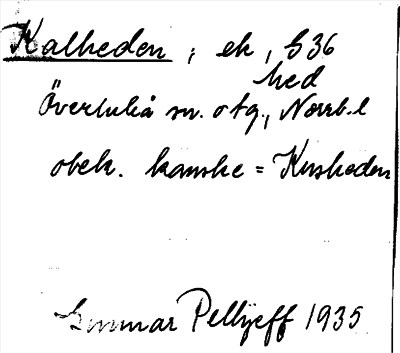 Kalheden ; ek , G 36
hed
Överluleå sn. o tg., Norrb. l
obek. kanske = Kusheden
Gunnar Pellijeff 1935